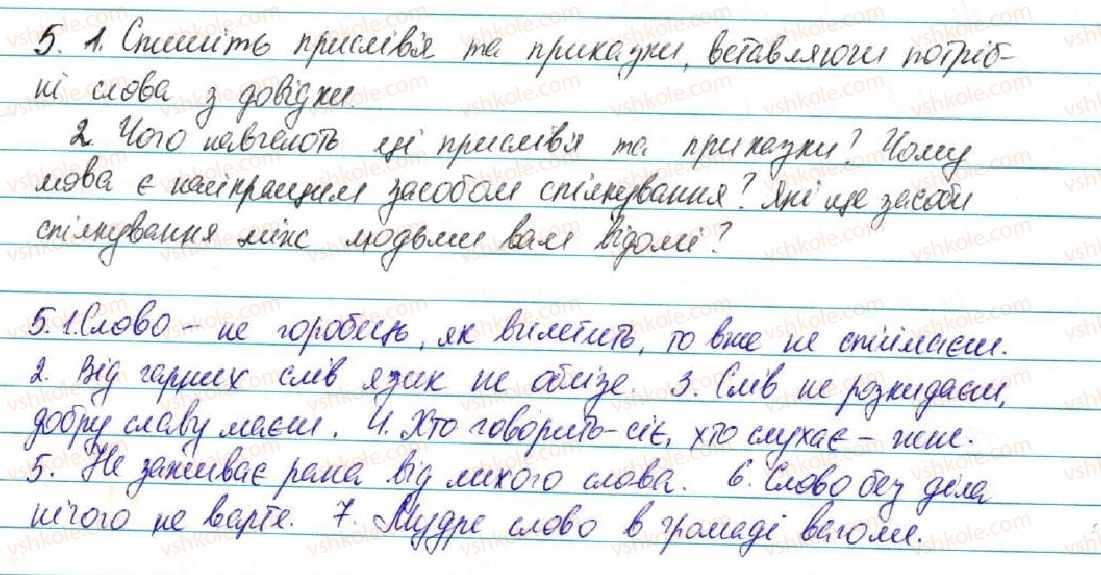 5. 1. Спишіть прислів'я та приказки, вставляючи потріб-
ні слова з довідки.
2. Чого навчають ці прислів'я та приказки? Чому
мова є найкращим засобом спілкування? Які ще засоби
спілкування між людьми вам відомі?
5. 1. Слово – не горобець, як вилетить, то вже не спіймаєш.
2. Від гарних слів язик не облізе. 3. Слів не розкидаєш,
добру славу маєш. 4. Хто говорить – сіє, хто слухає – жне.
5. Не заживає рана від лихого слова. 6. Слово без діла
нічого не варте. 7. Мудре слово в громаді вагоме.